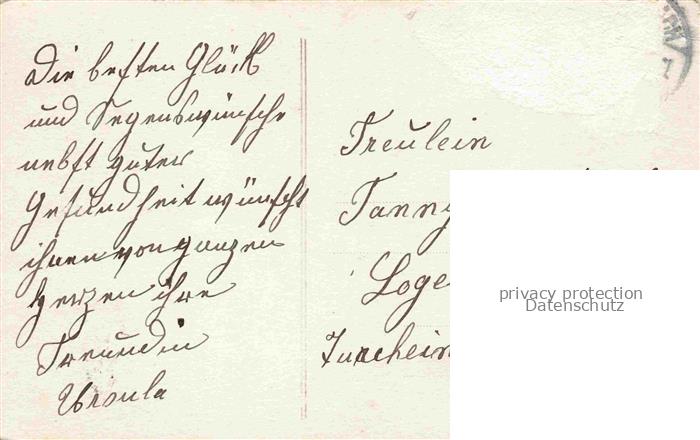 Die besten Glück
und Segenswünsche
nebst guter
Gesundheit wünscht
ihnen von ganzen
Herzen ihre
Freundin
Ursula
Freulein
Fanny
Loge
privacy protection
Datenschutz